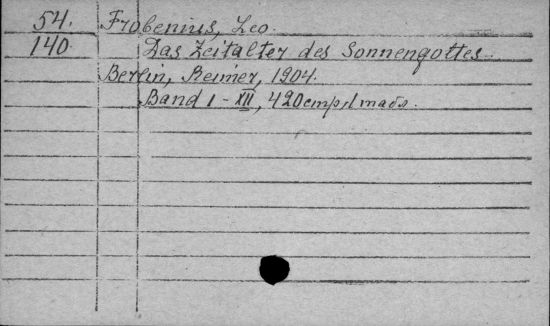 54. Frobenius, Leo.
140 Das Zeitalter des Sonnengottes
Berlin, Reimer, 1904.
Band I - XII, 420